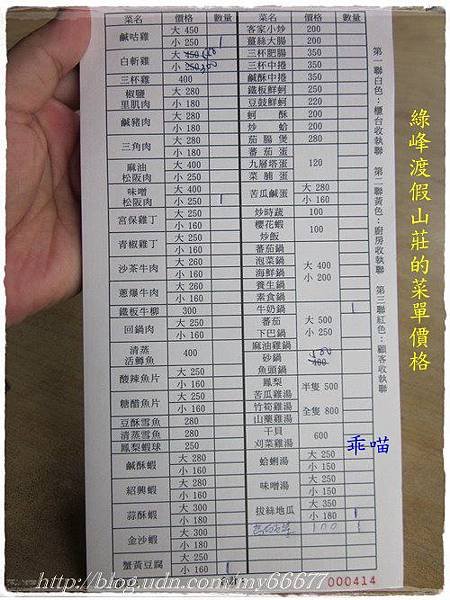 菜名 價格 數量 菜名 價格 數量
鹹咕雞 大 450
小 250 1
白斬雞 大 450
小 250
三杯雞 400
椒鹽里肌肉 大 280
小 180
鹹豬肉 大 280
小 180
三角肉 大 280
小 180
麻油松阪肉 大 400
小 250
味噌松阪肉 大 400
小 250 1
宮保雞丁 大 250
小 160
青椒雞丁 大 250
小 160
沙茶牛肉 大 250
小 160
蔥爆牛肉 大 250
小 160
鐵板牛柳 300
回鍋肉 大 250
小 160
清蒸活鱒魚 400
酸辣魚片 大 250
小 160
糖醋魚片 大 250
小 160
豆酥雪魚 280
清蒸雪魚 280
鳳梨蝦球 250
鹹酥蝦 大 280
小 160
紹興蝦 大 280
小 160
蒜酥蝦 大 300
小 180
金沙蝦 大 300
小 180
蟹黃豆腐 大 250
小 160 1
客家小炒 200
薑絲大腸 200
三杯肥腸 350
三杯中捲 350
鹹酥中捲 350
鐵板鮮蚵 250
豆鼓鮮蚵 220
蚵酥 200
炒蛤 200
茄腸煲 280
蕃茄蛋
九層塔蛋 120
菜脯蛋
苦瓜鹹蛋 大 280
小 160
炒時蔬 100
櫻花蝦炒飯 100
蕃茄鍋
泡菜鍋
海鮮鍋 大 400
養生鍋 小 200
素食鍋
牛奶鍋 1
蕃茄下巴鍋 大 500
小 250
麻油雞鍋
砂鍋魚頭鍋 400
鳳梨苦瓜雞湯 半隻 500
竹筍雞湯
山藥雞湯 全隻 800
干貝刈菜雞湯 600
蛤蜊湯 大 250
小 150
味噌湯 大 250
小 150
拔絲地瓜 大 350
小 180 1
100 1
第一聯白色：櫃台收執聯 第二聯黃色：廚房收執聯 第三聯紅色：顧客收執聯
000414
綠峰渡假山莊的菜單價格
乖喵
http://blog.udn.com/my66677